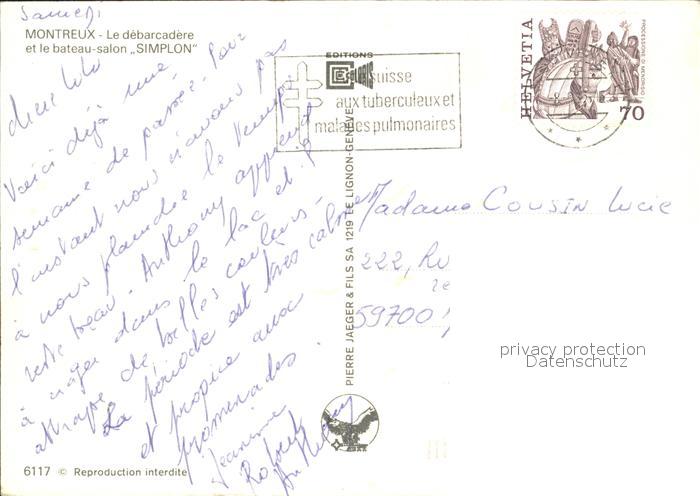 Samedi
MONTREUX - Le débarcadère
et le bateau-salon „SIMPLON"
Chère Lulu
Voici déjà une
semaine de passée. Pour
l'instant nous n'avons pas
à nous plaindre le temps
reste beau. Anthony apprend
à nager dans le lac et
attrape de belles couleurs.
La période est très calme
et propice aux
promenades.
Jeannine
Anthony
EDITIONS
suisse
aux tuberculeux et
malades pulmonaires
HELVETIA
70
PIERRE JAEGER & FILS SA 1219 LE LIGNON-GENÈVE
Madame COUSIN Lucie
222, Ru
59700
privacy protection
Datenschutz
6117 © Reproduction interdite